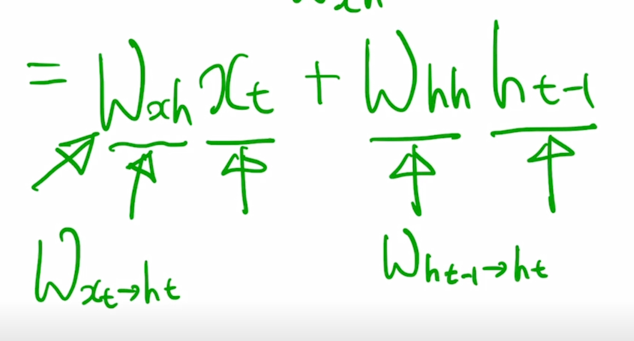 = W_{xh} x_t + W_{hh} h_{t-1}
W_{x_t→h_t} W_{h_{t-1}→h_t}